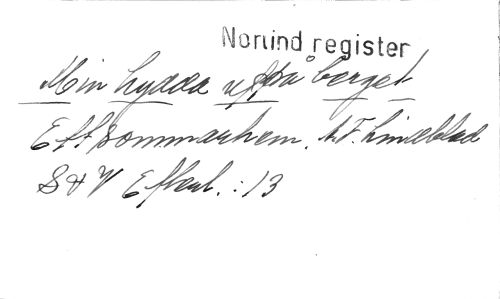 Norlind register
Min hydda uppå berget
Ett sommarhem. A.F. Lindblad
S & V Efterl. : 13